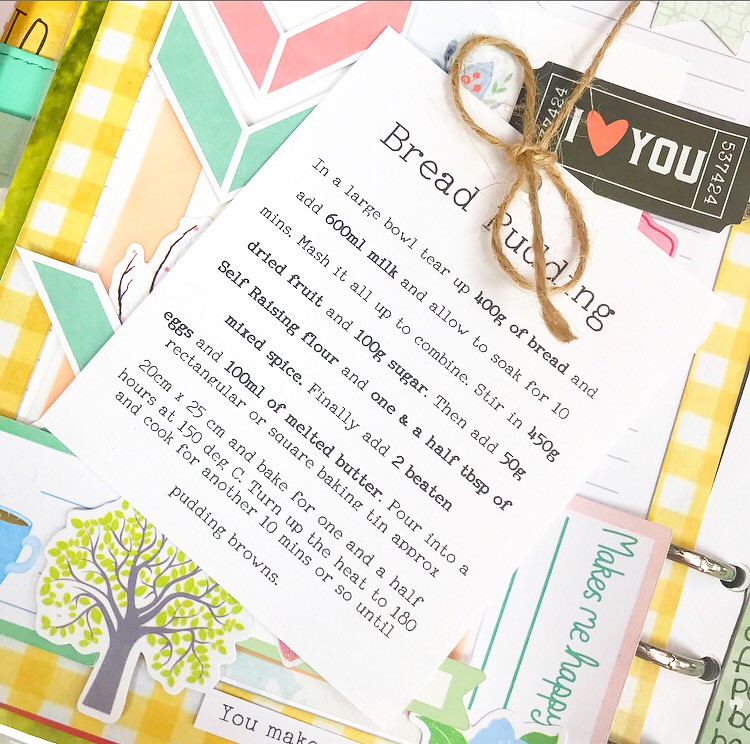 TO
I YOU
424
537424
Bread Pudding
In a large bowl tear up 400g of bread and
add 600ml milk and allow to soak for 10
mins. Mash it all up to combine. Stir in 450g
dried fruit and 100g sugar. Then add 50g
Self Raising flour and one & a half tbsp of
mixed spice. Finally add 2 beaten
eggs and 100ml of melted butter. Pour into a
rectangular or square baking tin approx
20cm x 25 cm and bake for one and a half
hours at 150 deg C. Turn up the heat to 180
and cook for another 10 mins or so until
pudding browns.
Makes me happy
You make